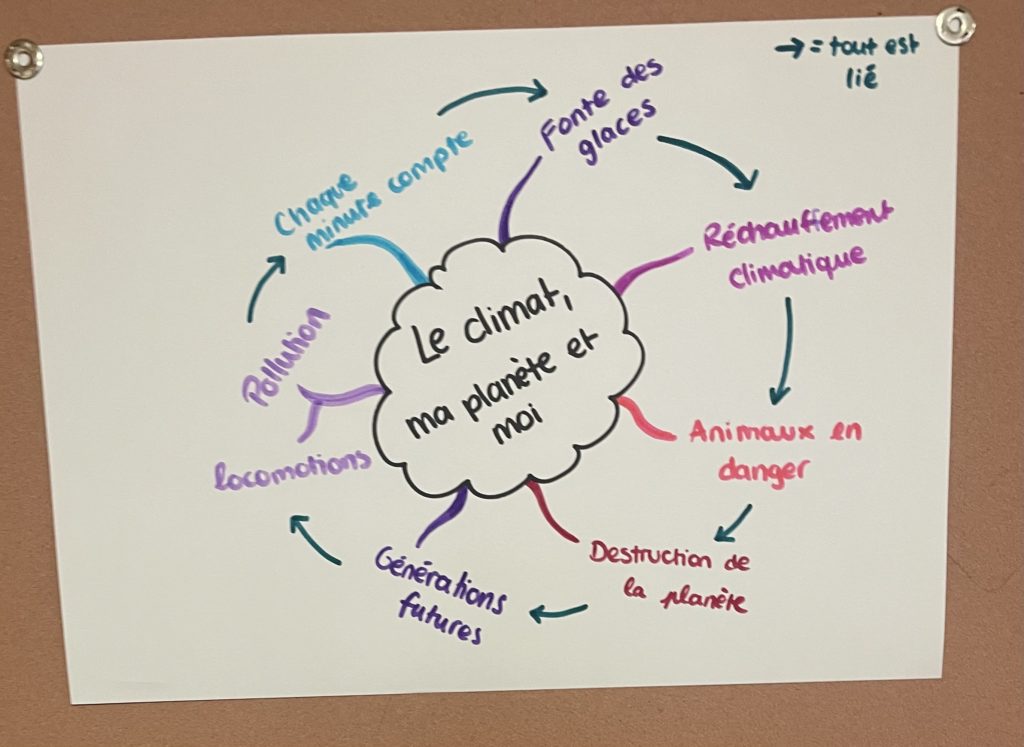 → = tout est
lié
Fonte des
glaces
Chaque
minute compte
Réchauffement
climatique
Le climat,
ma planète et
moi
Pollution
locomotions
Animaux en
danger
Destruction de
la planète
Générations
futures